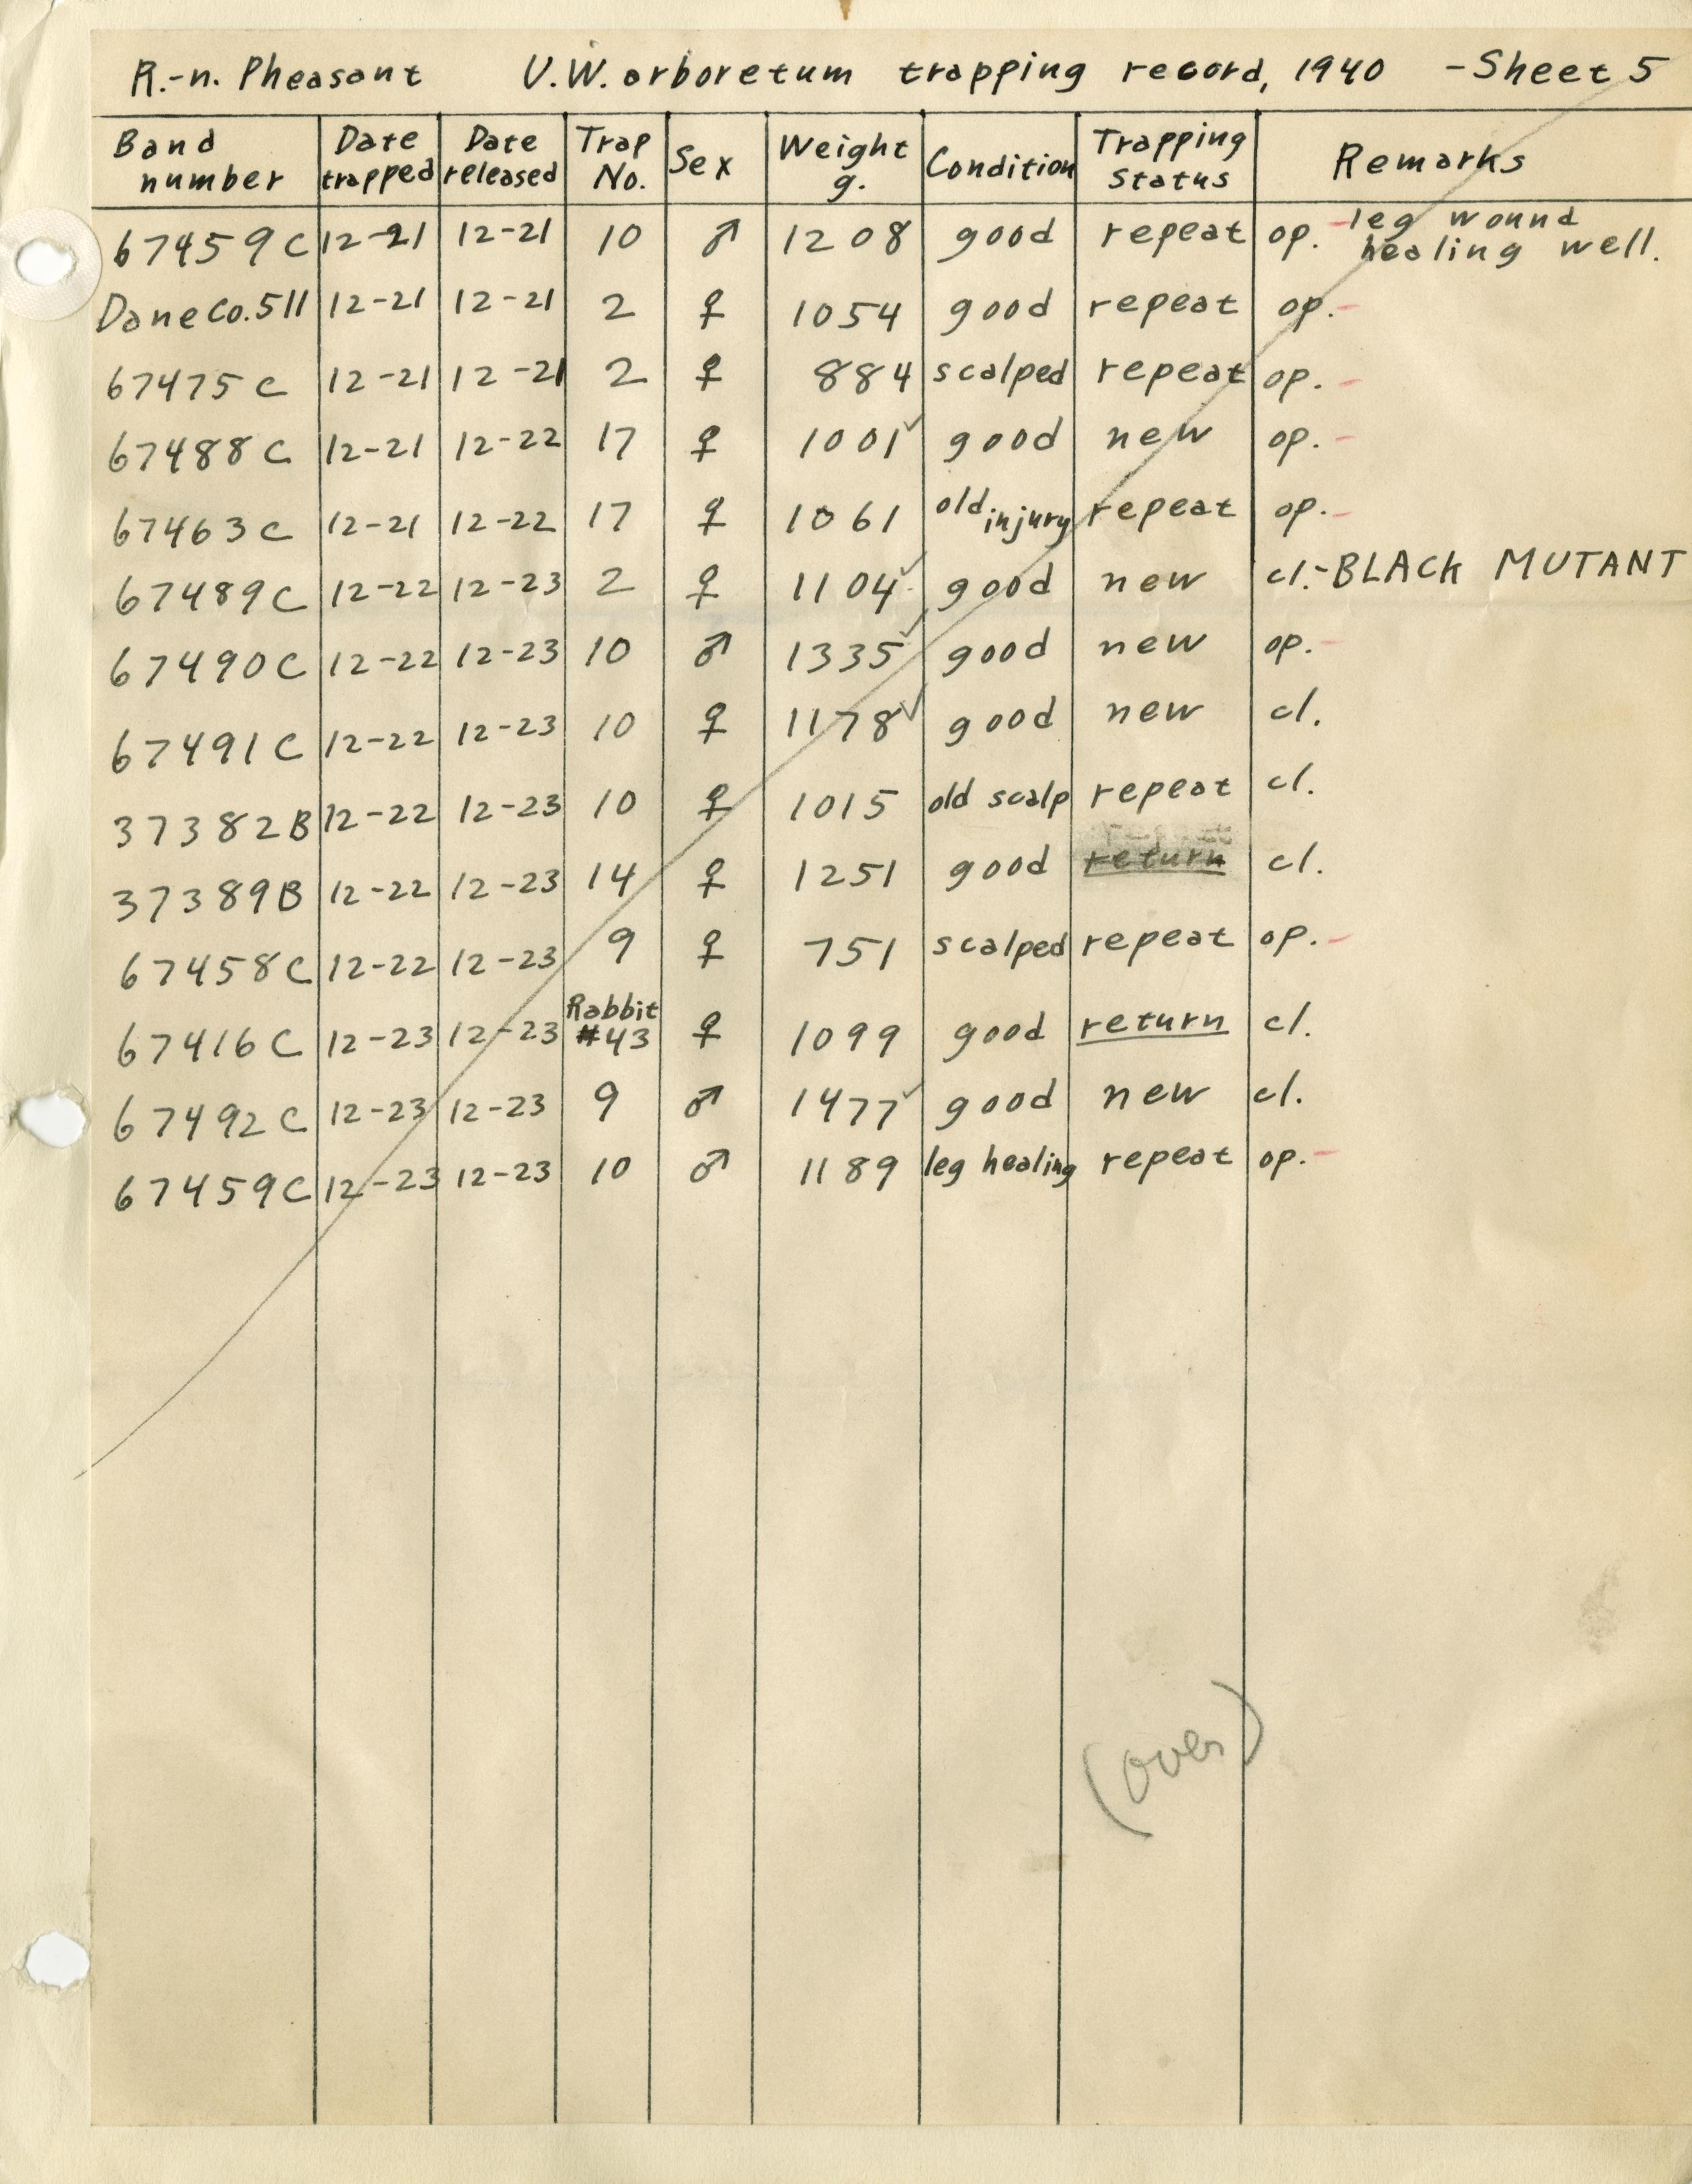 R.-n. Pheasant U.W. arboretum trapping record, 1940 - Sheet 5
Band number Date trapped Date released Trap No. Sex Weight g. Condition Trapping Status Remarks
67459C 12-21 12-21 10 ♂ 1208 good repeat op. - leg wound healing well.
Dane Co. 511 12-21 12-21 2 ♀ 1054 good repeat op. -
67475C 12-21 12-21 2 ♀ 884 scalped repeat op. -
67488C 12-21 12-22 17 ♀ 1001 ✓ good new op. -
67463C 12-21 12-22 17 ♀ 1061 old injury repeat op. -
67489C 12-22 12-23 2 ♀ 1104 ✓ good new cl. - BLACK MUTANT
67490C 12-22 12-23 10 ♂ 1335 ✓ good new op. -
67491C 12-22 12-23 10 ♀ 1178 ✓ good new cl.
37382B 12-22 12-23 10 ♀ 1015 old scalp repeat cl.
37389B 12-22 12-23 14 ♀ 1251 good return cl.
67458C 12-22 12-23 9 ♀ 751 scalped repeat op. -
67416C 12-23 12-23 Rabbit #43 ♀ 1099 good return cl.
67492C 12-23 12-23 9 ♂ 1477 ✓ good new cl.
67459C 12-23 12-23 10 ♂ 1189 leg healing repeat op. -
(over)